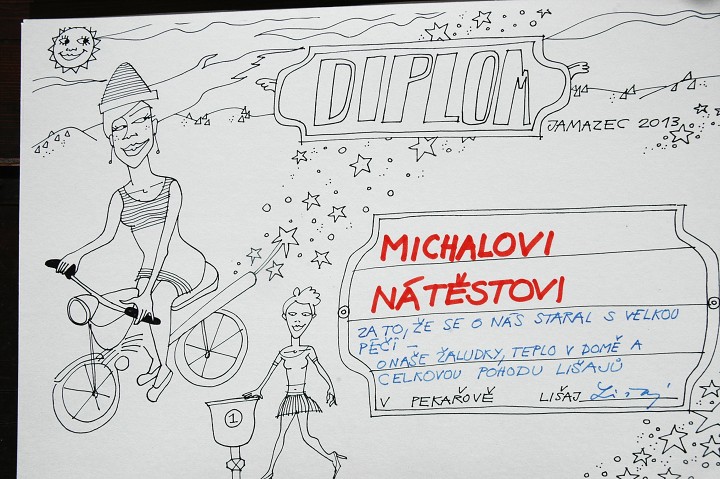 DIPLOM
JAMAZEC 2013
MICHALOVI
NÁTĚSTOVI
ZA TO, ŽE SE O NÁS STARAL S VELKOU
PÉČÍ –
O NAŠE ŽALUDKY, TEPLO V DOMĚ A
CELKOVOU POHODU LIŠAJŮ
V PEKAŘOVĚ LIŠAJ
1